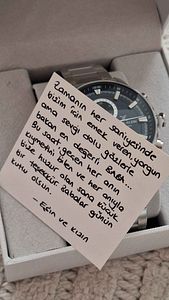 Zamanın her saniyesinde
bizim için emek veren, yorgun
ama sevgi dolu gözlerle
bakan en değerli BABA...
Bu saat, geçen her anın
kıymetini bilen ve her anıyla
bize huzur olan sana küçük
bir teşekkür Babalar günün
kutlu olsun.
- Eşin ve kızın